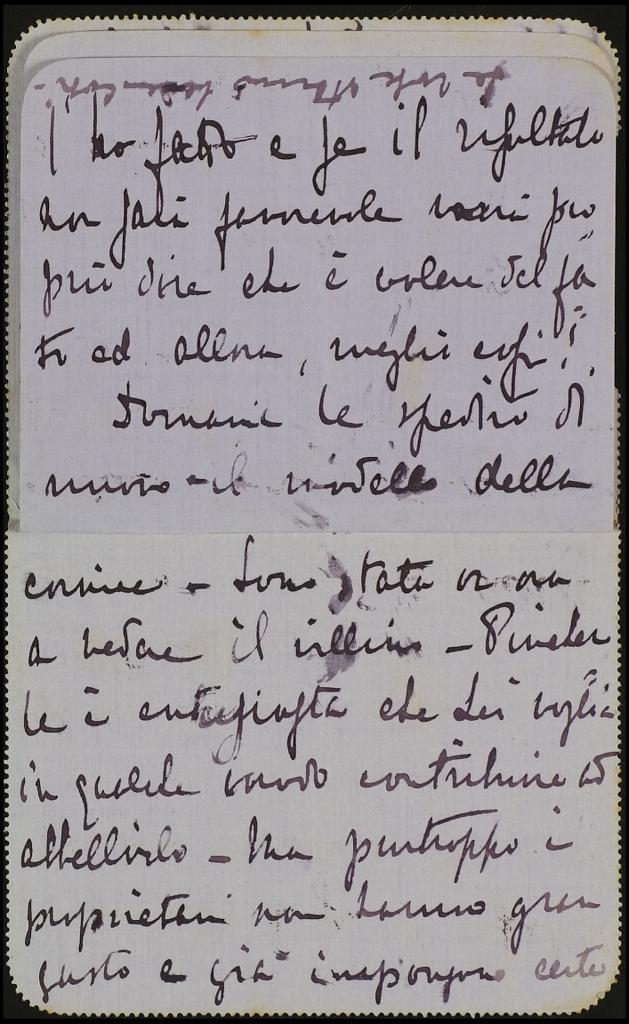 l'ho fatto e se il risultato
non sarà favorevole vorrà pro
prio dire che è volere del fa=
to ed allora, meglio così!
Domani le spedirò di
nuovo il modello della
cornice - Sono stata or ora
a vedere il villino -
le è entusiasta che Lei voglia
in qualche modo contribuire ad
abbellirlo - Ma purtroppo i
proprietari non hanno gran
gusto e già impongono certe